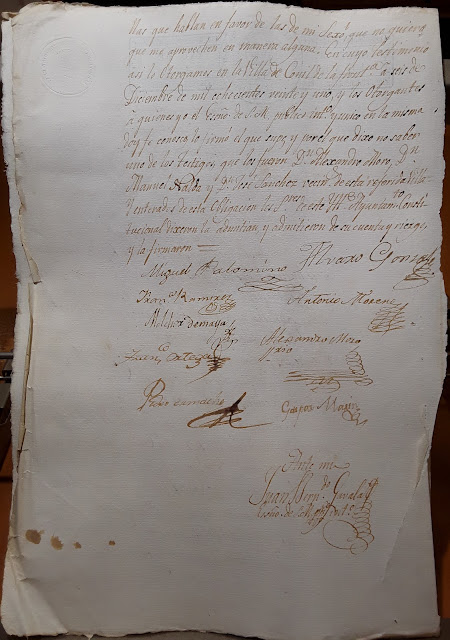 Mas que hablan en favor de las de mi Sexô, que no quiero
que me aprovechen en manera alguna. En cuyo testimonio
asi lo Otorgamos en la Villa de Conil de la front.ª a seis de
Diciembre de mil ochocientos veinte y uno, y los Otorgantes
â quienes yo el Escño de S. M. pub.co y unico en la misma
doy fe conozco lo firmó el que supo y por el que dixo no saber
uno de los testigos, que los fueron D.n Alexandro Moro, D.n
Manuel y D.n José Sanchez vecin.s de esta referida Villa
Y enterados de esta Obligacion los S.res de este Ayuntam.to Consti-
tucional dixeron la admitian y admitieron de su cuenta y riesgo,
y lo firmaron =
Miguel Palomino Alvaro Gonz
Ramirez Antonio Moreno
Melchor
Juan Ortega Alexandro Moro
Pedro Camacho Gaspar
Ante mi
Juan Gavala
Escño de